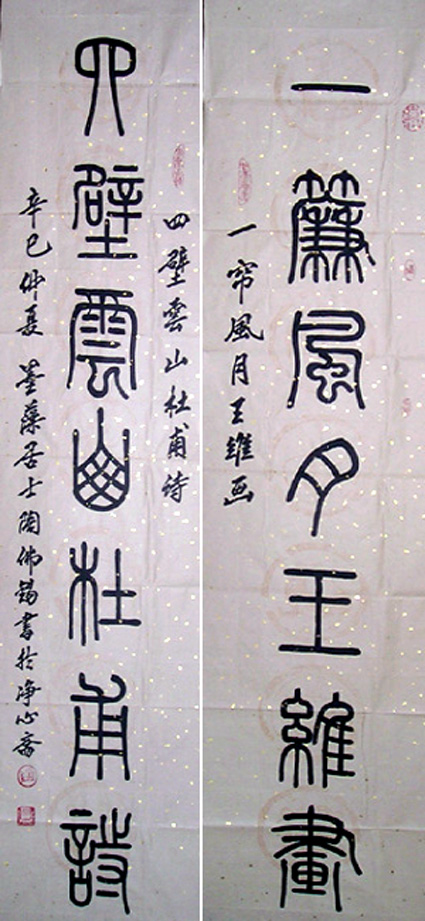 一簾風月王維畫
一帘風月王維画
四壁雲山杜甫诗
四壁雲山杜甫詩
辛巳仲夏 藻居士陶佛錫書於净心齋